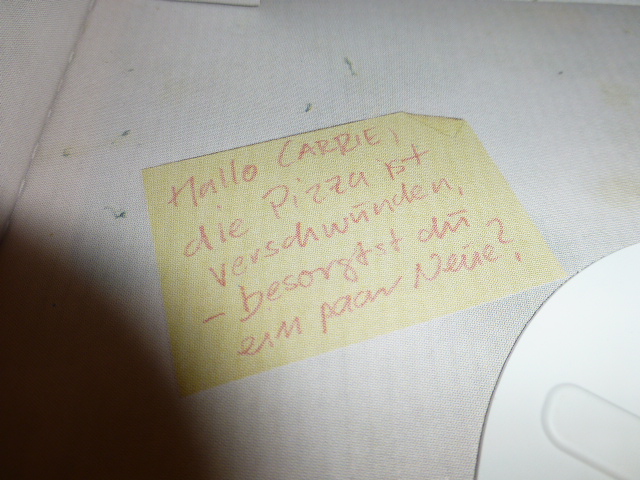 Hallo CARRIE,
die Pizza ist
verschwunden,
- besorgst du
ein paar Neue?